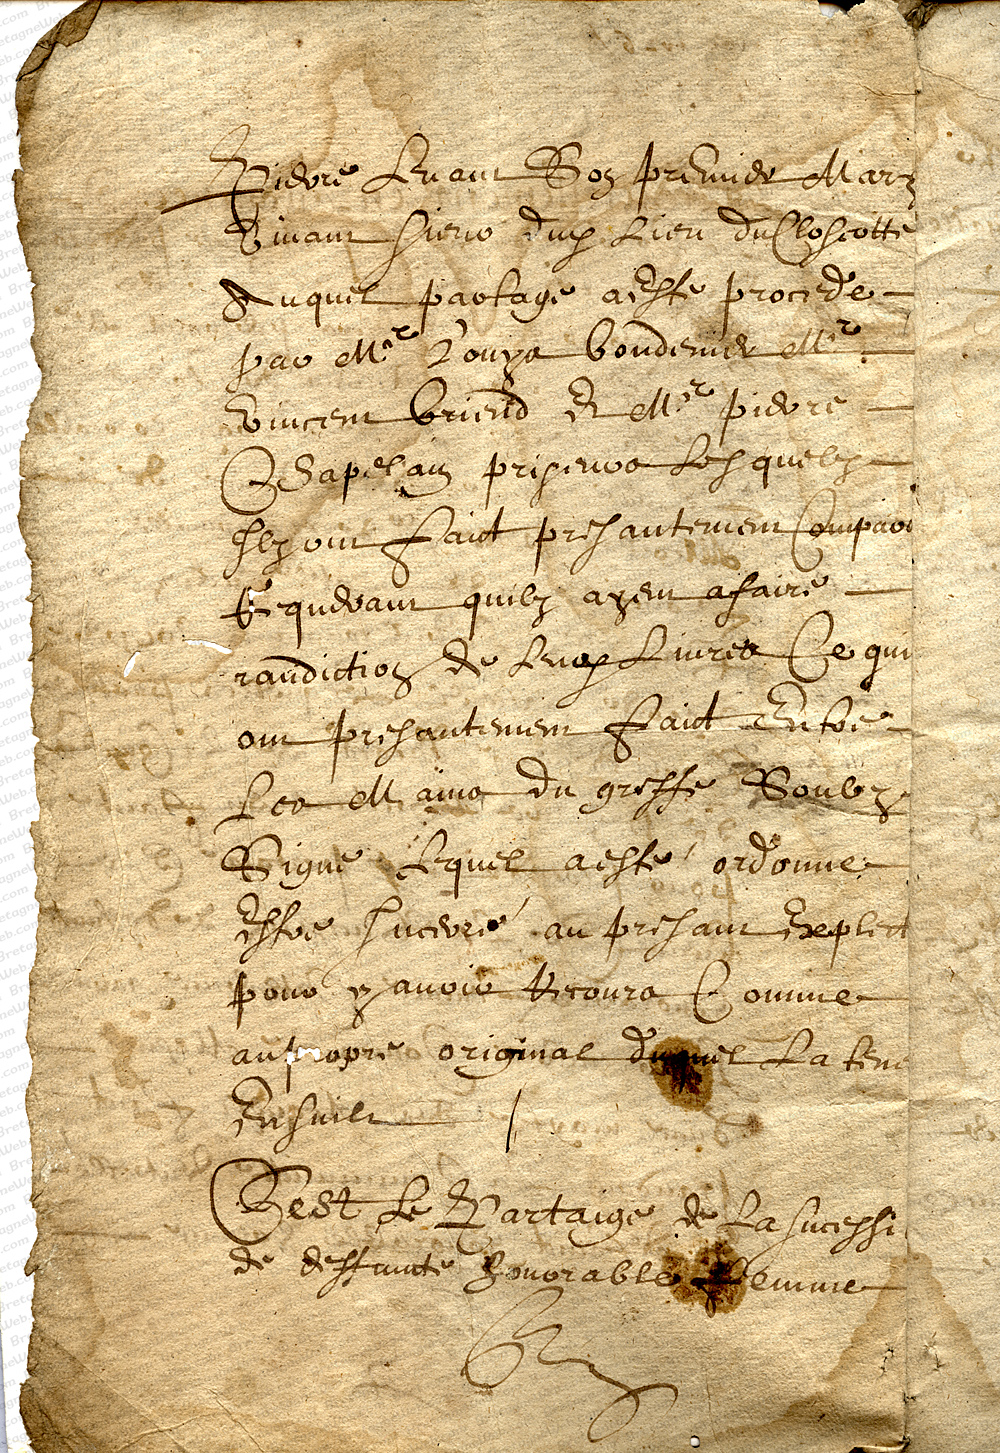 Pierre Levant Son premier Mary
Vivant sieur du Lieu du Closcotte
Auquel partage a esté procedé
par Mr Louys bondenier Mr
Vincent briend et Mr pierre
Chapelain priseurs Lesquelz
ilz ont faict presantement Compar
Requerant quilz ayent a faire
randiction de leurs Livres Ce qui
ont presantement faict Entre
Les Mains du greffe Soubz
Signé Lequel a esté ordonné
Estre inceré au presant Exploit
pour y avoir Recours Comme
au propre original duquel La ten
Ensuilt /
Cest Le Partaige de La sucessi
de deffunte honorable femme